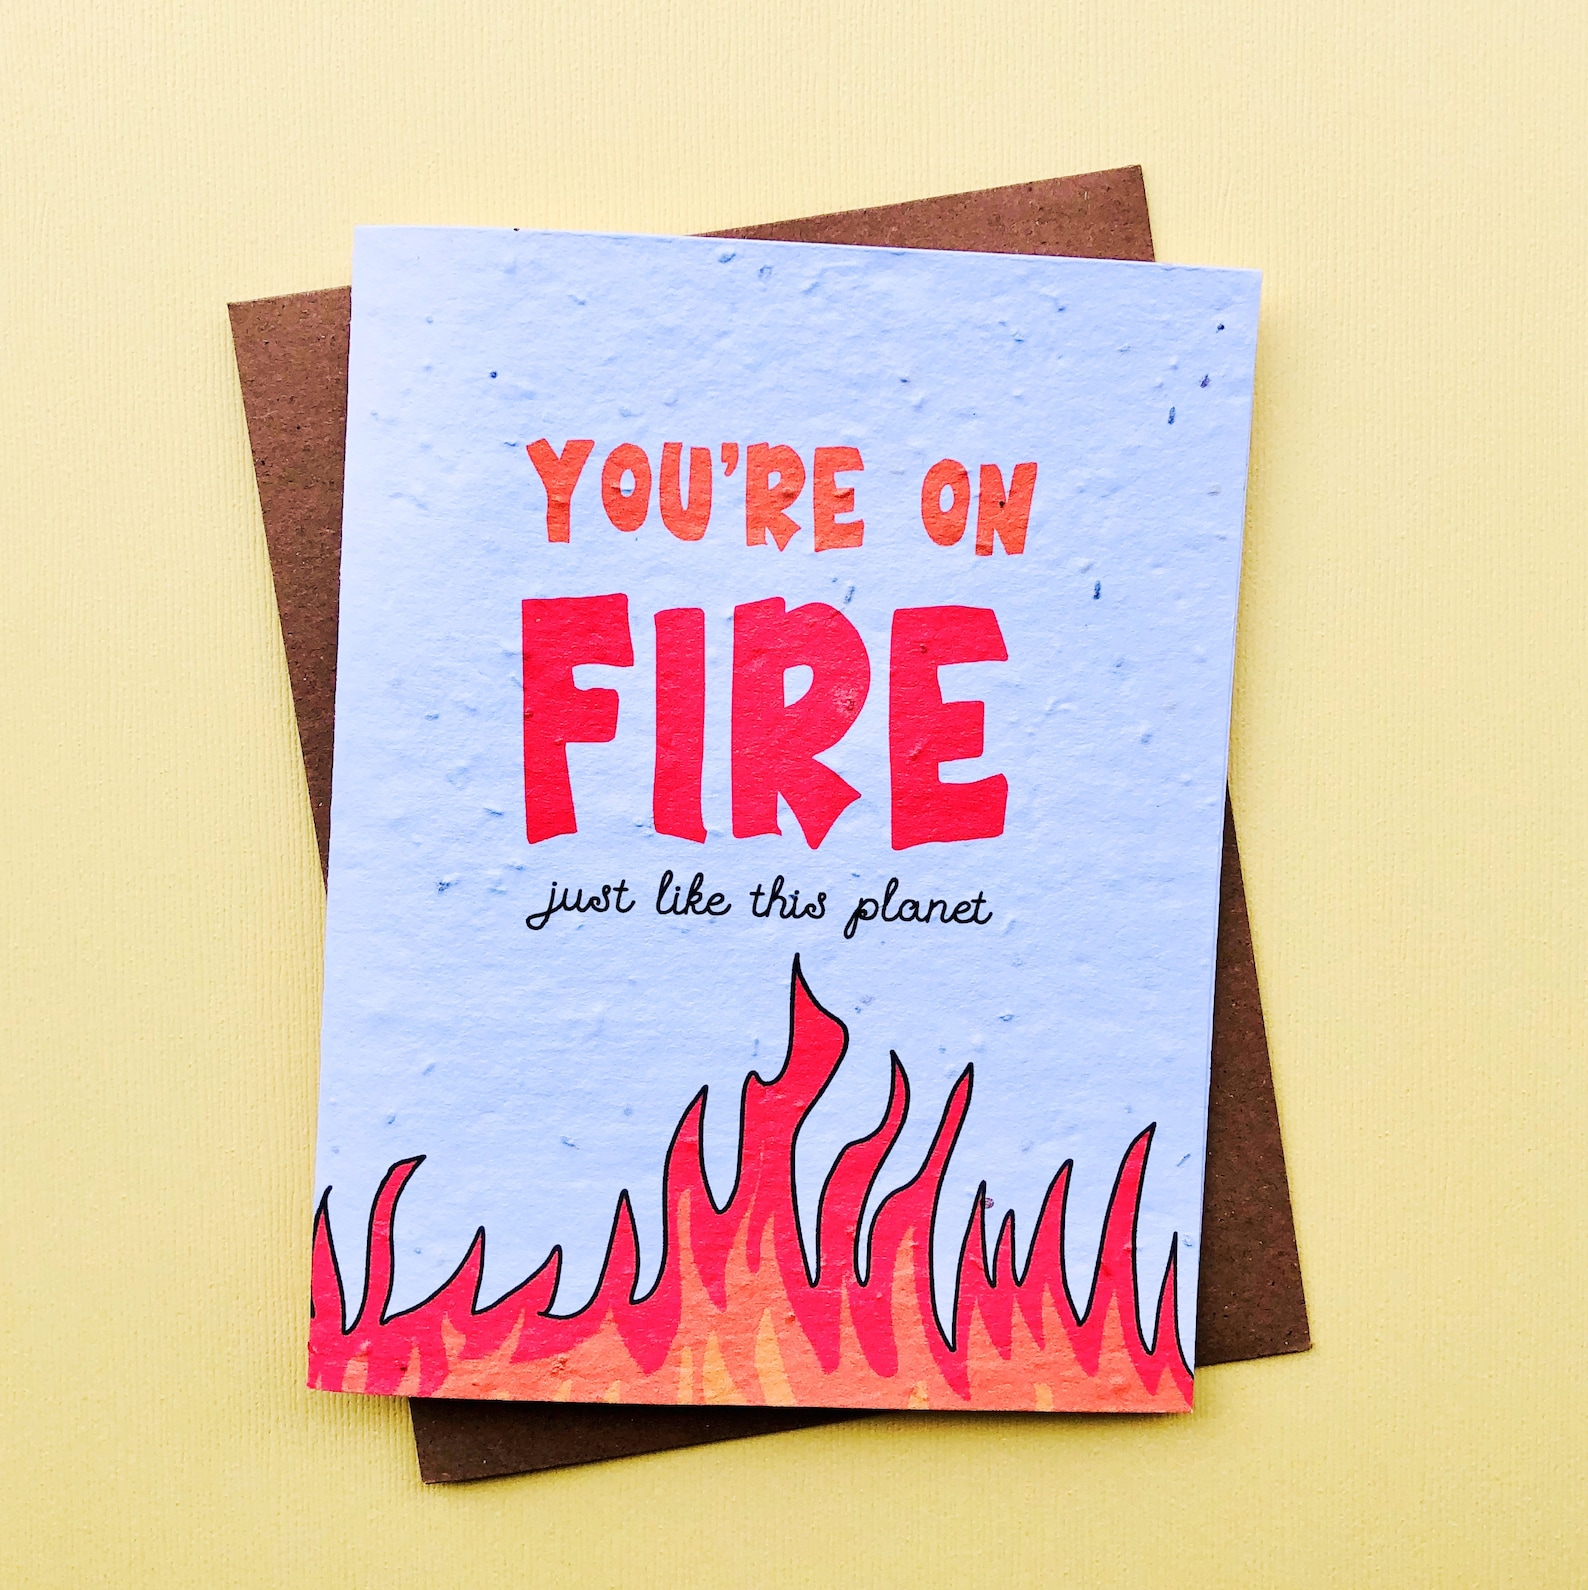 YOU'RE ON
FIRE
just like this planet